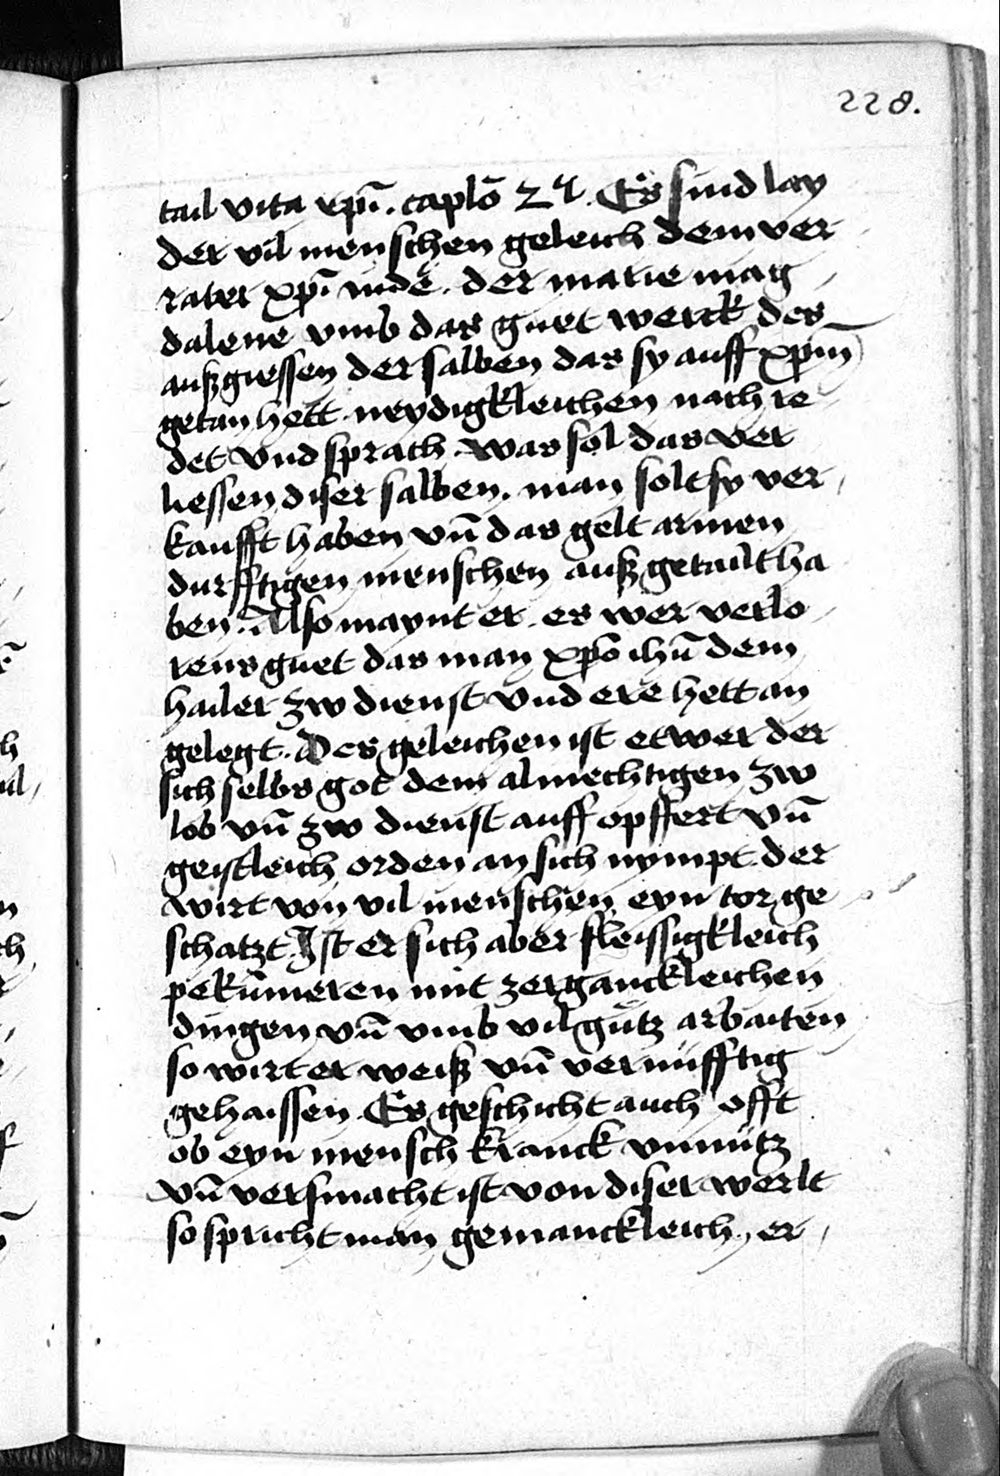 228.
tail vita xp̄i. caplō 24. Es sind lay
der vil menschen geleich dem ver
rater xp̄i iude. der marie mag
dalene vmb das guet werck des
außgiessen der salben das sy auff xp̄m
getan hett neydigkleichen nach re
det vnd sprach was sol das ver
liessen diser salben. man solt sy ver
kaufft haben vn̄ das gelt armen
durfftigen menschen auß getailt ha
ben. Also maynt er. es wer verlo
rens guet das man xp̄o ih̄u dem
hailer zw dienst vnd ere hett an
gelegt. Des geleichen ist etwer der
sich selbs got dem almechtigen zw
lob vn̄ zw dienst auff opffert vn̄
geistleich orden an sich nympt. der
wirt von vil menschen eyn tor ge
schatzt Ist er sich aber fleissigkleich
pekūmeren mit zerganckleichen
dingen vn̄ vmb vil gütz arbaiten
so wirt er weiß vn̄ vernüfftig
gehaissen. Es geschicht auch offt
ob eyn mensch kranck vnnütz
vn̄ versmacht ist von diser werlt
so spricht man gemanckleich, er